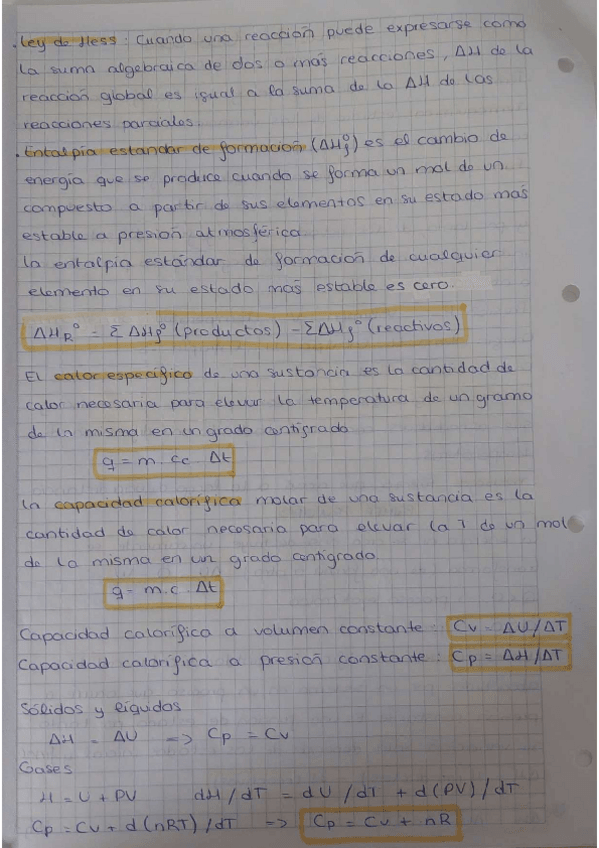 . Ley de Hess: Cuando una reacción puede expresarse como
la suma algebraica de dos o más reacciones, ΔH de la
reacción global es igual a la suma de la ΔH de las
reacciones parciales.
. Entalpía estandar de formación (ΔHf°) es el cambio de
energía que se produce cuando se forma un mol de un
compuesto a partir de sus elementos en su estado mas
estable a presión atmosférica
la entalpía estándar de formación de cualquier
elemento en su estado mas estable es cero.
ΔHR° = Σ ΔHf° (productos) - ΣΔHf° (reactivos)
El calor específico de una sustancia es la cantidad de
calor necesaria para elevar la temperatura de un gramo
de la misma en un grado centígrado
q = m . cc . Δt
la capacidad calorífica molar de una sustancia es la
cantidad de calor necesaria para elevar la T de un mol
de la misma en un grado centigrado
q = m . c . Δt
Capacidad calorífica a volumen constante : Cv = ΔU/ΔT
Capacidad calorífica a presión constante : Cp = ΔH/ΔT
Sólidos y líquidos
ΔH = ΔU => Cp = Cv
Gases
H = U + PV dH/dT = dU/dT + d(PV)/dT
Cp = Cv + d(nRT)/dT => Cp = Cv + nR